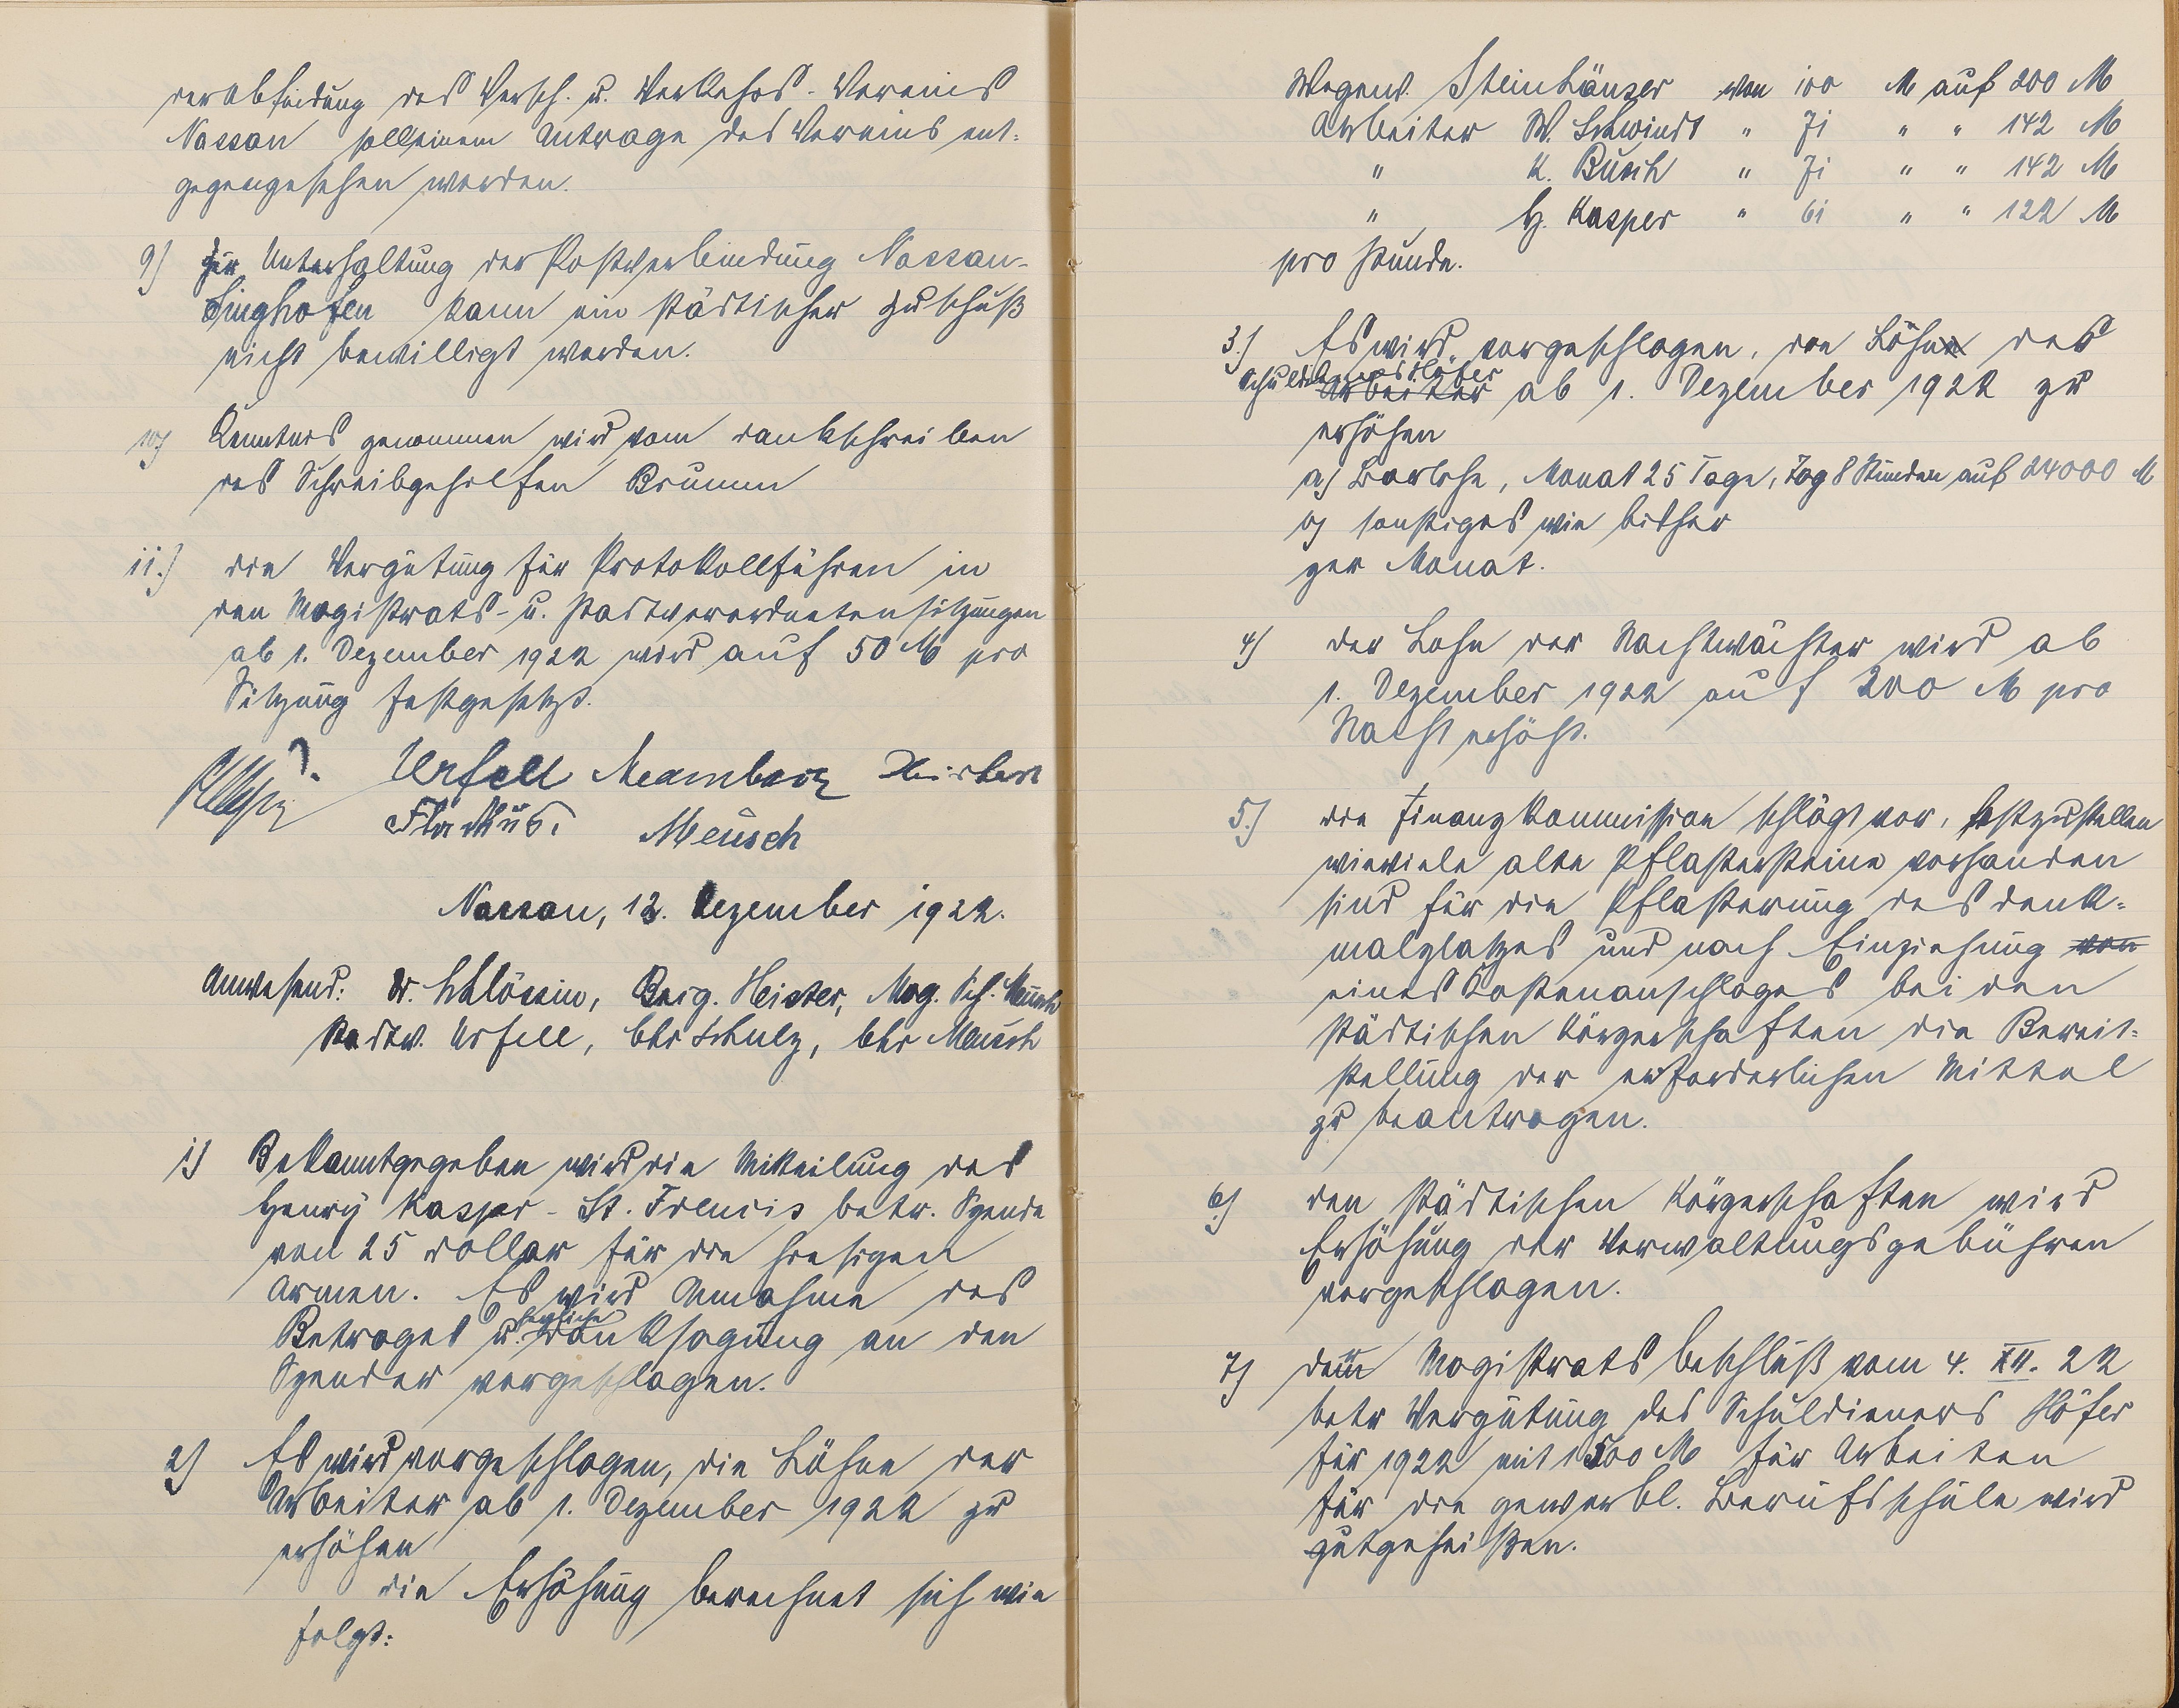 der Abfindung des Versch. u. Verkehrs-Vereins
Nassau soll einem Antrage des Vereins ent-
gegengesehen werden.
9) Zur Unterhaltung der Postverbindung Nassau-
Singhofen kann ein städtischer Zuschuß
nicht bewilligt werden.
10) Kenntnis genommen wird vom Dankschreiben
des Schreibgehilfen Brumm
11.) Die Vergütung für Protokollführen in
den Magistrats- u. Stadtverordnetensitzungen
ab 1. Dezember 1922 wird auf 50 M pro
Sitzung festgesetzt.
Urfell
Meusch
Nassau, 12. Dezember 1922.
Anwesend: Dr. Schlössin, Beig. Heister, Mag. Sch. Meusch
Stadtv. Urfell, Chr Schulz, Chr Meusch
1) Bekanntgegeben wird die Mitteilung des
Henry Kasper-St. Francis betr. Spende
von 25 Dollar für die hiesigen
Armen. Es wird Annahme des
Betrages u. herzliche Danksagung an den
Spender vorgeschlagen.
2) Es wird vorgeschlagen, die Löhne der
Arbeiter ab 1. Dezember 1922 zu
erhöhen
Die Erhöhung berechnet sich wie
folgt:
Wegew. Steinhäuser von 100 M auf 200 M
Arbeiter W. Schwindt " 71 " " 142 M
" K. Busch " 71 " " 142 M
" H. Kasper " 61 " " 122 M
pro Stunde.
3.) Es wird vorgeschlagen, den Löhne des
Schuldieners Höfer
Arbeiter ab 1. Dezember 1922 zu
erhöhen
a) Barlohn, Monat 25 Tage, Tag 8 Stunden auf 24000 M
b) sonstiges wie bisher
per Monat.
4) Der Lohn der Nachtwächter wird ab
1. Dezember 1922 auf 200 M pro
Nacht erhöht.
5.) Die Finanzkommission schlägt vor, festzustellen
wieviele alte Pflastersteine vorhanden
sind für die Pflasterung des Denk-
malplatzes und nach Einziehung von
eines Kostenanschlages bei den
städtischen Körperschaften die Bereit-
stellung der erforderlichen Mittel
zu beantragen.
6.) Den städtischen Körperschaften wird
Erhöhung der Verwaltungsgebühren
vorgeschlagen.
7) Dem Magistratsbeschluß vom 4. XII. 22
betr Vergütung des Schuldieners Höfer
für 1922 mit 1500 M für Arbeiten
für die gewerbl. Berufsschule wird
gutgeheißen.